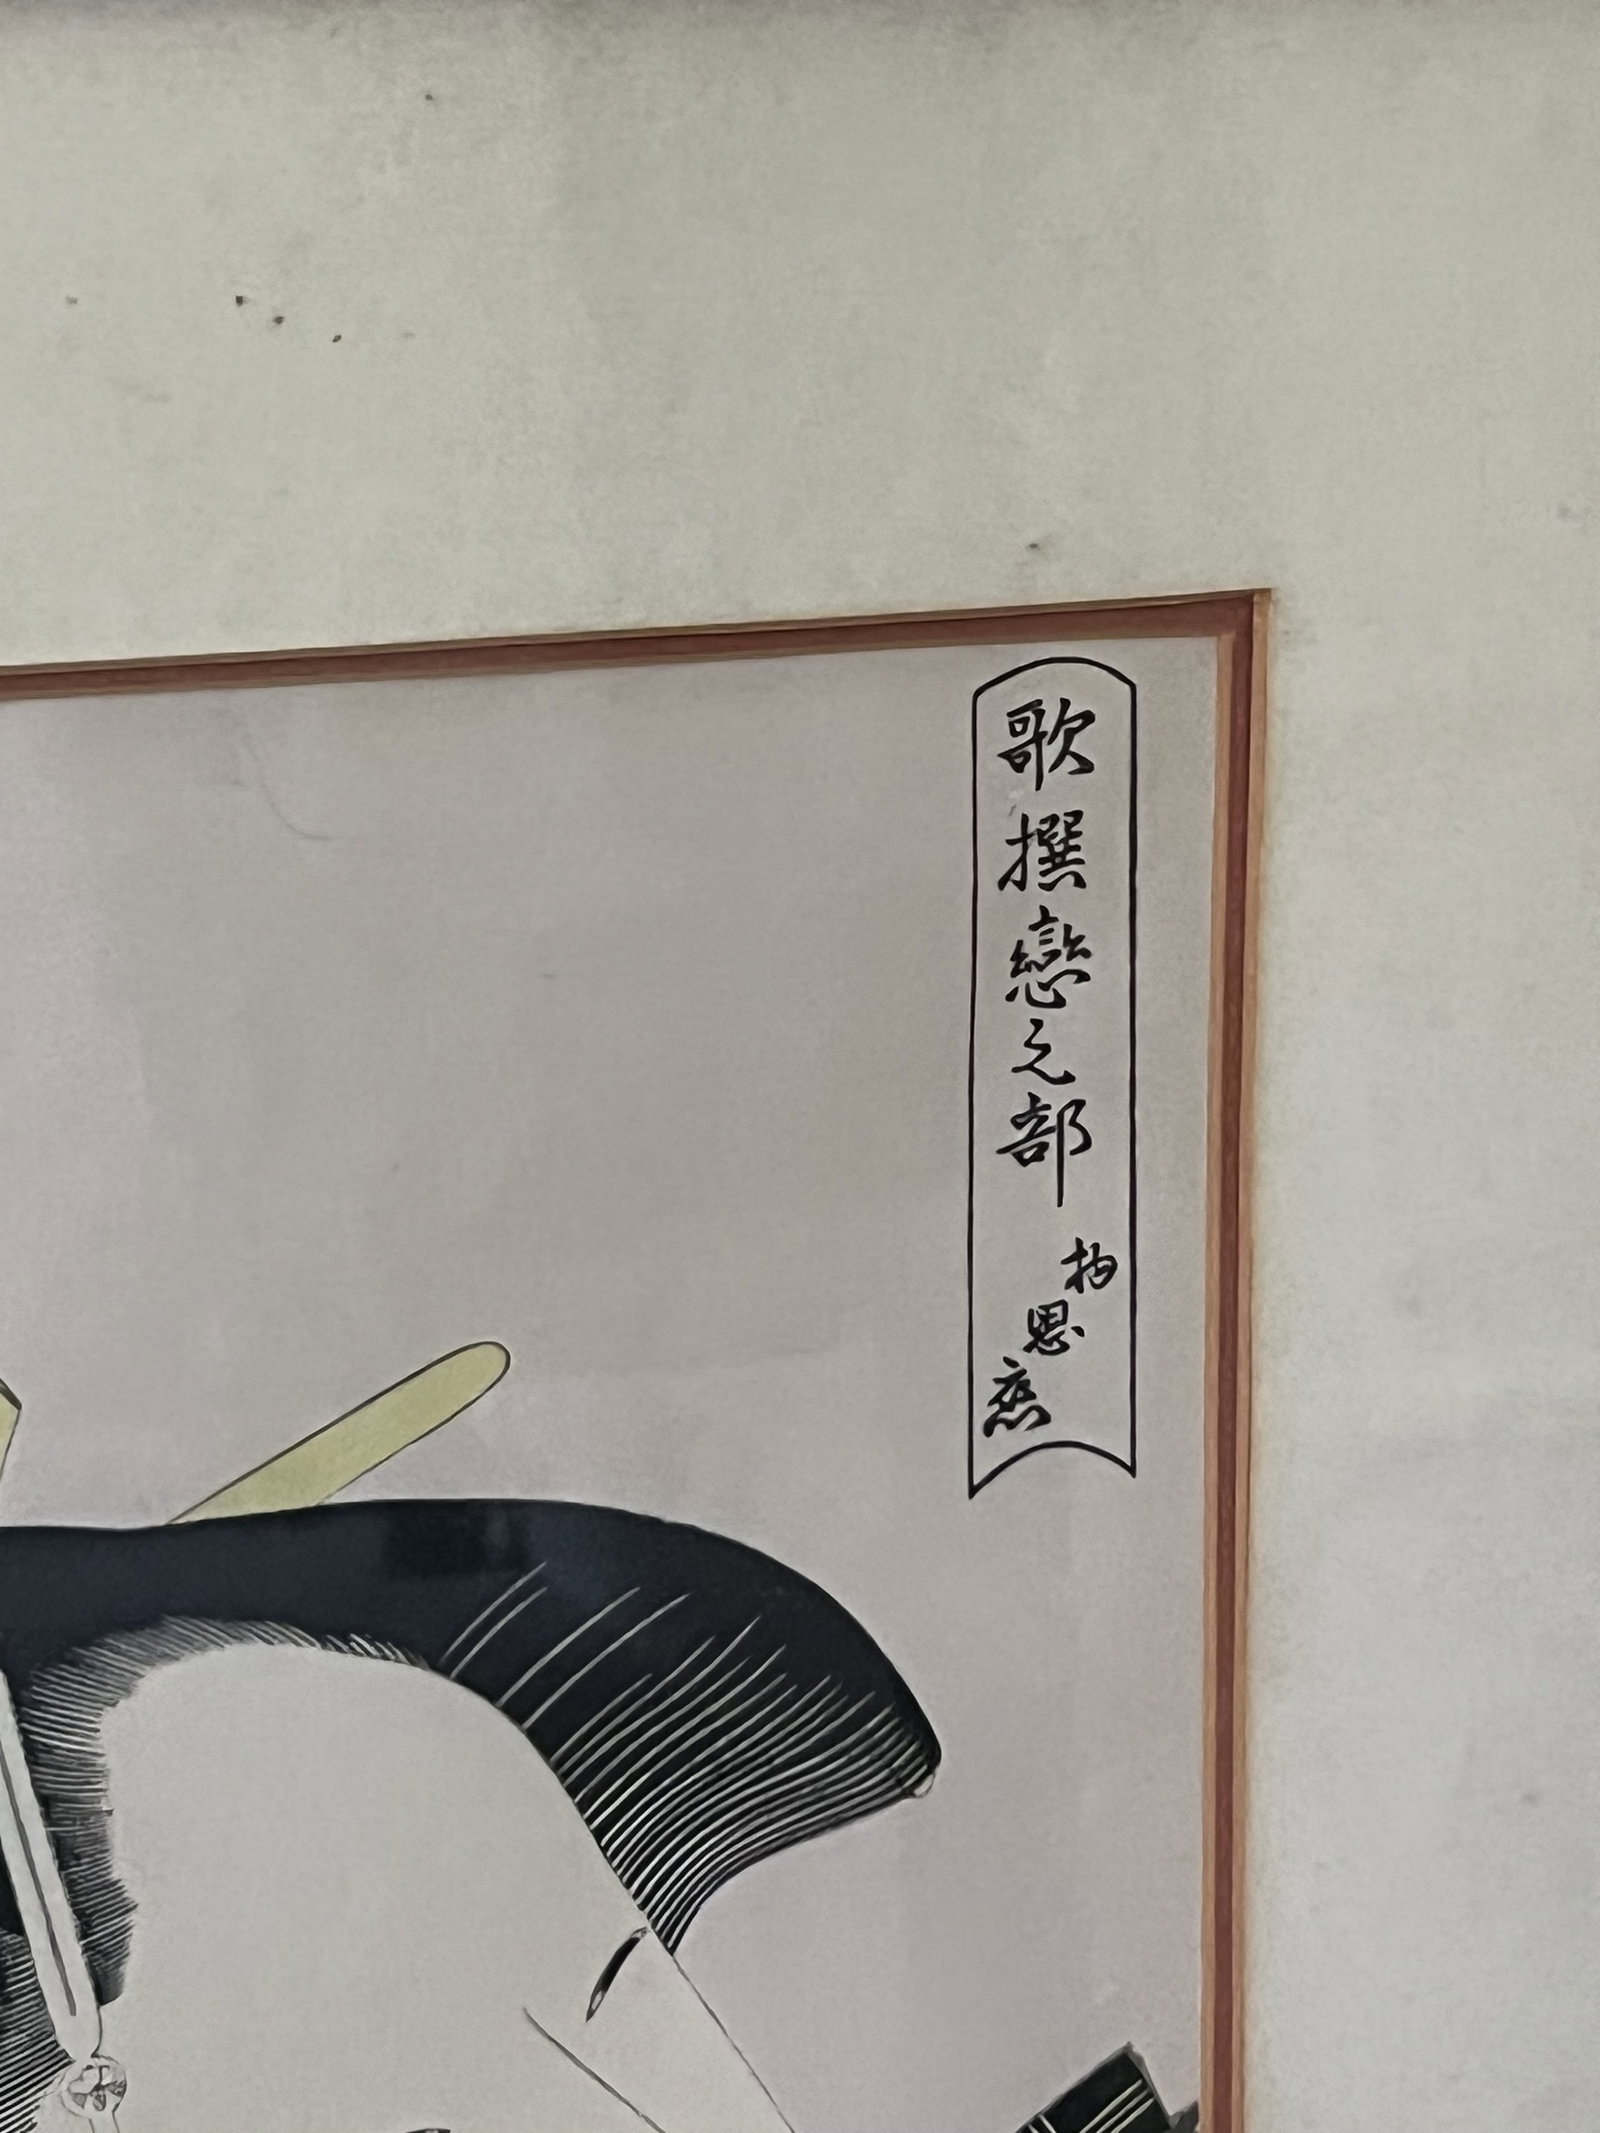 歌撰戀之部
物思恋